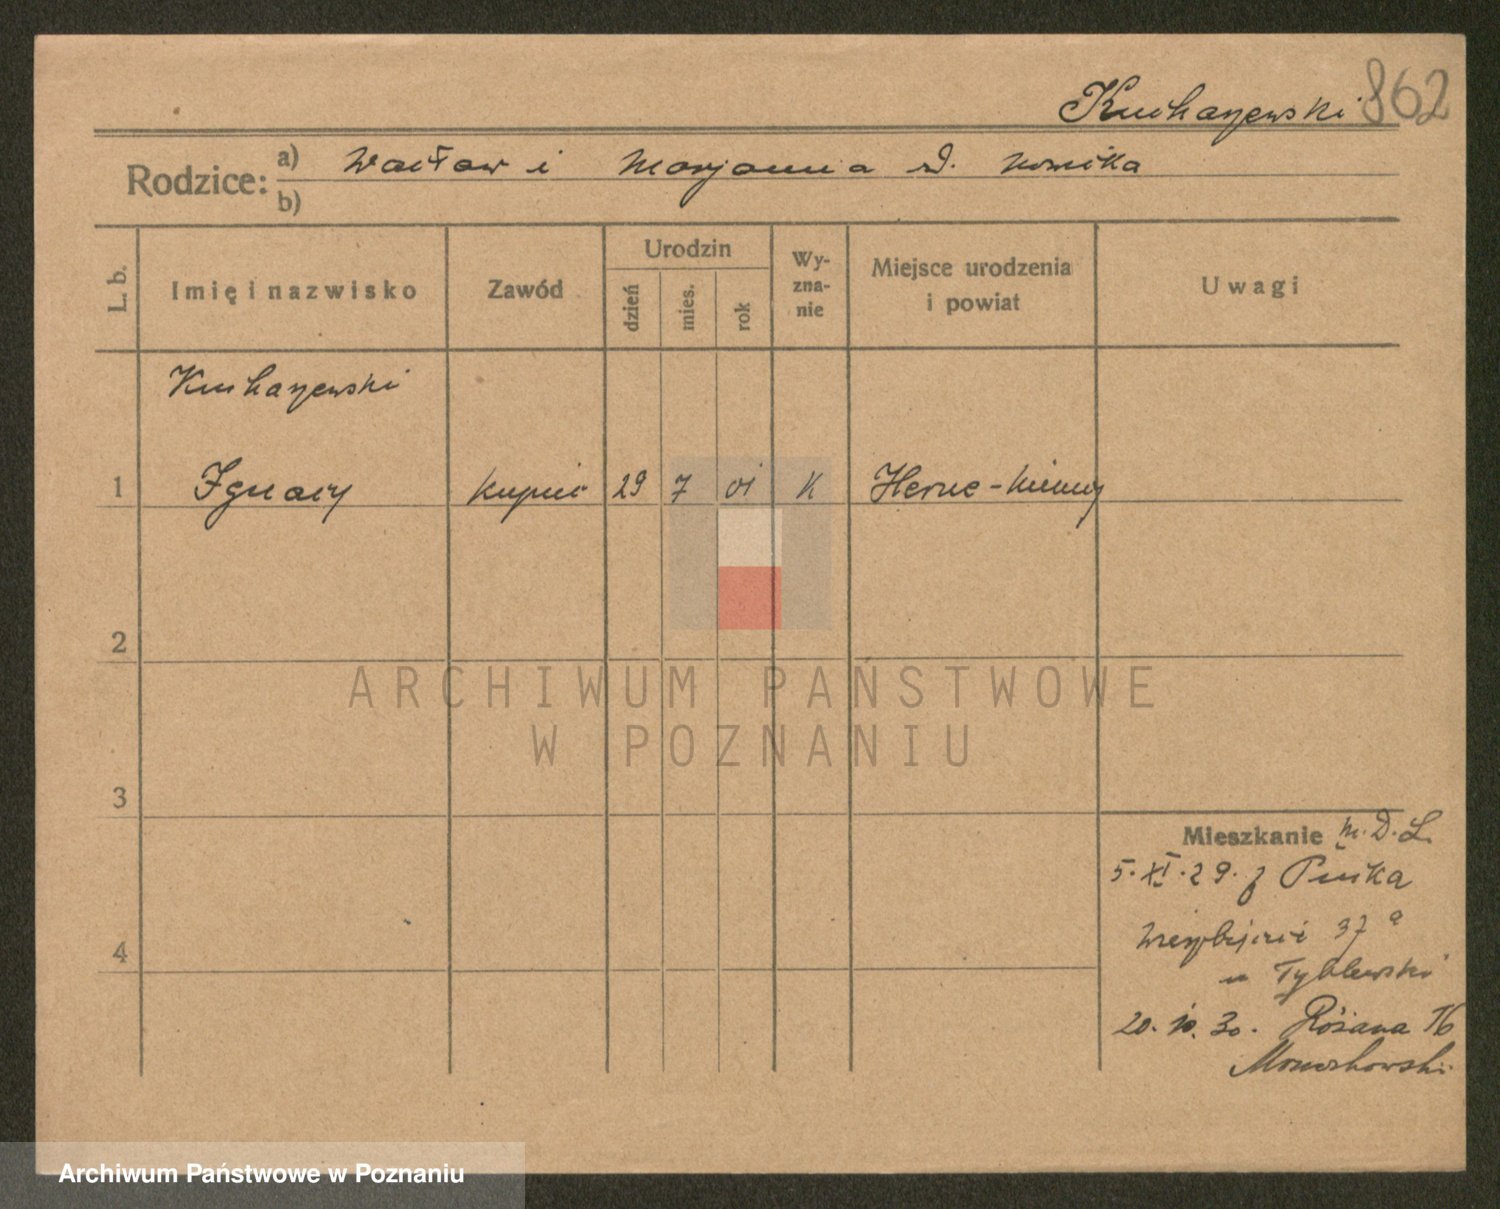 Kucharzewski 862
Rodzice: a) Wacław i Marjanna d. Nowicka
b)
L. b. Imię i nazwisko Zawód Urodzin dzień mies. rok Wy-zna-nie Miejsce urodzenia i powiat Uwagi
Kucharzewski
1 Ignacy kupiec 29 7 01 K Herne - Niemcy
2
ARCHIWUM PAŃSTWOWE
W POZNANIU
3
Mieszkanie
5. XI. 29. z Pucka
37 a
u Tyblewski
20. 10. 30. Różana 16
Archiwum Państwowe w Poznaniu
4